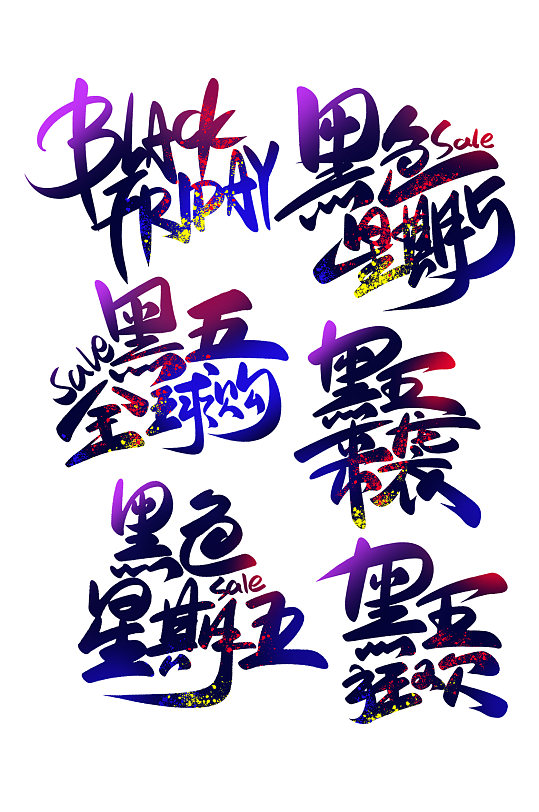 BLACK
FRIDAY
黑色 Sale
星期5
黑五
Sale
全球购
黑五
来袭
黑色
Sale
星期五
黑五
狂欢